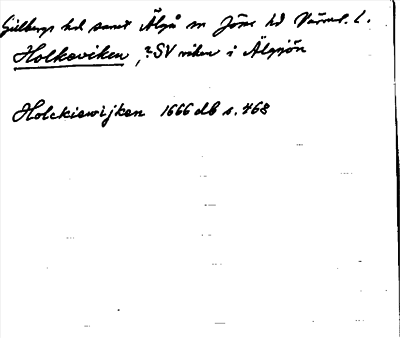 Gillbergs hd samt Älgå sn Jösse hd Värml. l.
Holkeviken, ? SV viken i Älgsjön
Holckiewijken 1666 db s. 468